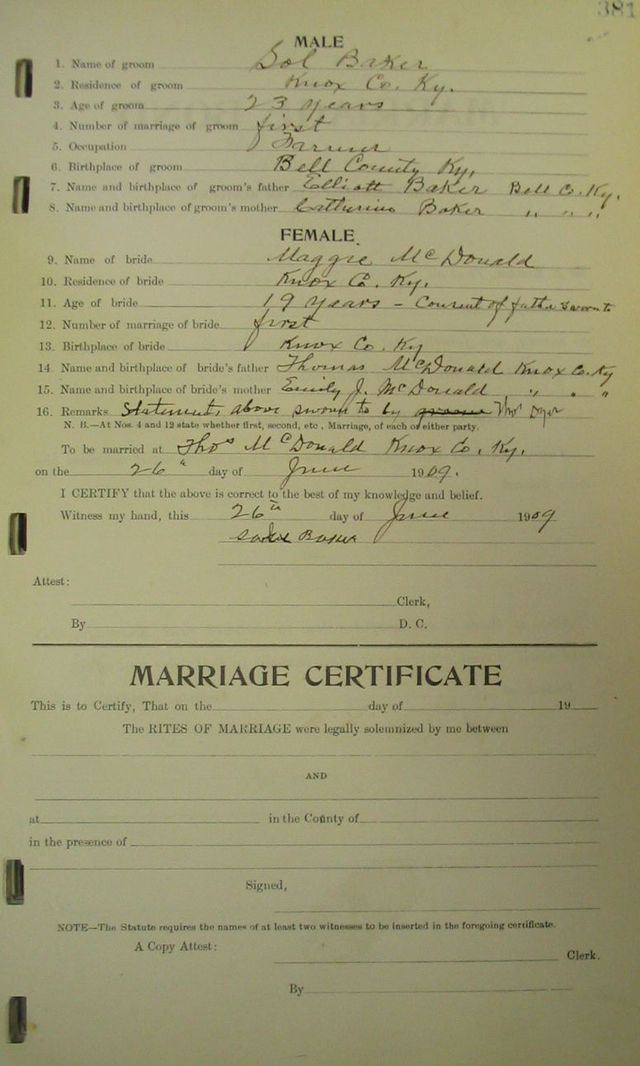 381
MALE
1. Name of groom Sol Baker
2. Residence of groom Knox Co. Ky.
3. Age of groom 23 years
4. Number of marriage of groom first
5. Occupation Farmer
6. Birthplace of groom Bell County Ky,
7. Name and birthplace of groom's father Elliott Baker Bell Co. Ky.
8. Name and birthplace of groom's mother Catherine Baker " " "
FEMALE.
9. Name of bride Maggie McDonald
10. Residence of bride Knox Co. Ky.
11. Age of bride 19 years - Consent of father sworn to
12. Number of marriage of bride first
13. Birthplace of bride Knox Co. Ky
14. Name and birthplace of bride's father Thomas McDonald Knox Co. Ky
15. Name and birthplace of bride's mother Emily J. McDonald " " "
16. Remarks Statements above sworn to by groom Thos Dyer
N. B.—At Nos. 4 and 12 state whether first, second, etc., Marriage, of each of either party.
To be married at Thos McDonald Knox Co. Ky.
on the 26" day of June 1909.
I CERTIFY that the above is correct to the best of my knowledge and belief.
Witness my hand, this 26th day of June 1909
Baker
Attest:
Clerk,
By D. C.
MARRIAGE CERTIFICATE
This is to Certify, That on the day of 19
The RITES OF MARRIAGE were legally solemnized by me between
AND
at in the County of
in the presence of
Signed,
NOTE—The Statute requires the names of at least two witnesses to be inserted in the foregoing certificate.
A Copy Attest:
Clerk.
By